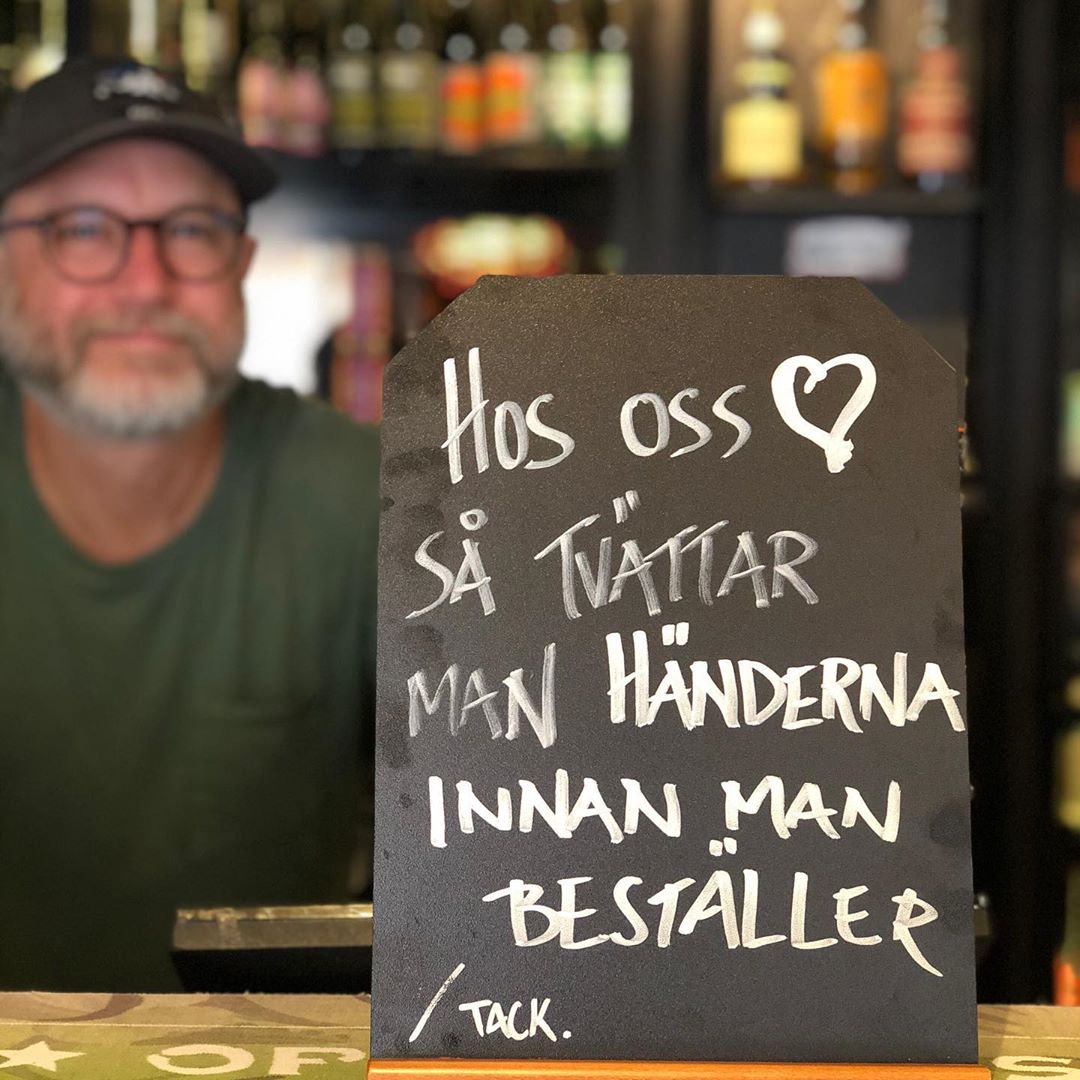 Hos oss
SÅ TVÄTTAR
MAN HÄNDERNA
INNAN MAN
BESTÄLLER
/TACK.